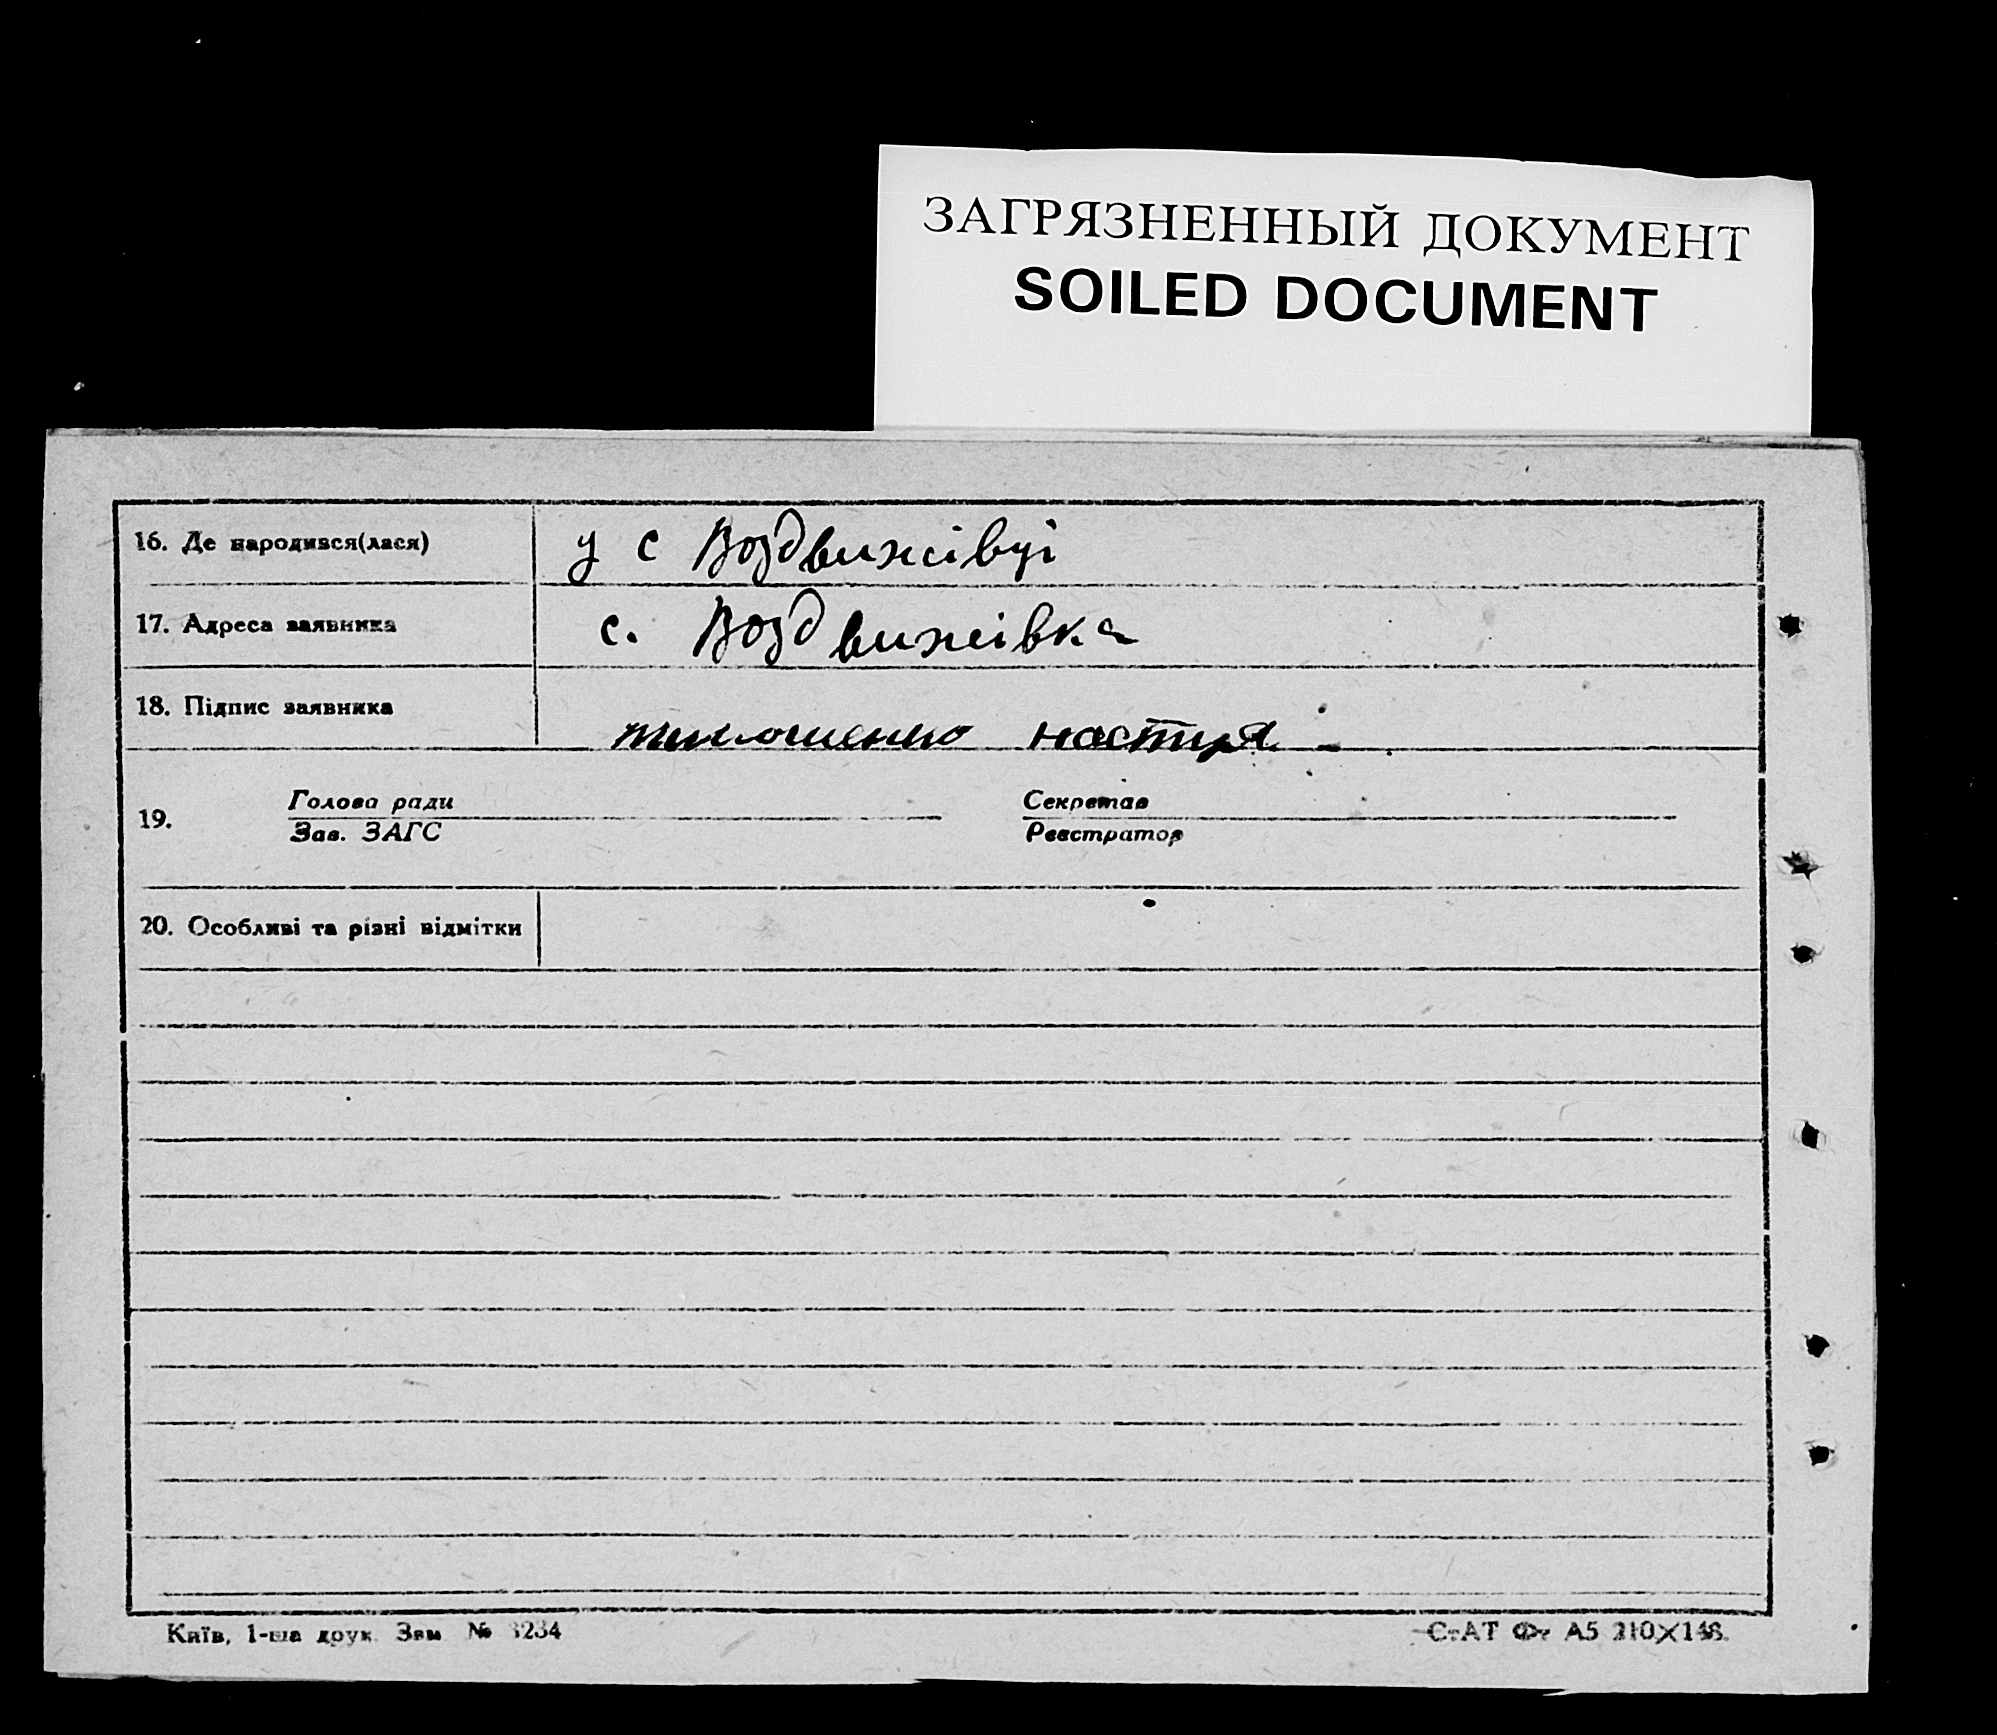 ЗАГРЯЗНЕННЫЙ ДОКУМЕНТ
SOILED DOCUMENT
16. Де народився(лася) у с Воздвижівці
17. Адреса заявника с. Воздвижівка
18. Підпис заявника настя
19. Голова ради Секретар
Зав. ЗАГС Реєстратор
20. Особливі та різні відмітки
Київ, 1-ша друк. Зам № 3234
Ф А5 210×148.